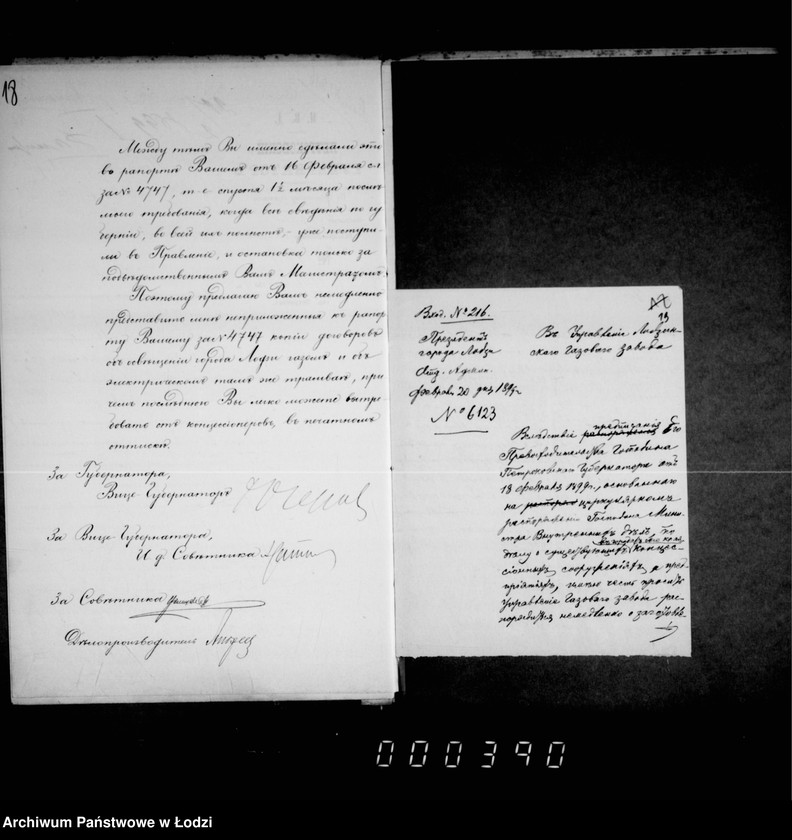 18
Между тѣмъ Вы именно сдѣлали это
въ рапортѣ Вашемъ отъ 16 Февраля с.г.
за № 4747, т-е спустя 1½ мѣсяца послѣ
моего требованія, когда всѣ свѣдѣнія по гу
берніи, во всей ихъ полнотѣ, уже поступи
ли въ Правленіе, и остановка только за
подвѣдомственнымъ Вамъ Магистратомъ
Поэтому предлагаю Вамъ немедленно
представить мнѣ неприложенныя къ рапор
ту Вашему за № 4747 копіи договоровъ
объ освѣщеніи города Лодзи газомъ и объ
электрическомъ тамъ же трамваѣ, при
чемъ послѣднюю Вы легко можете вытре
бовать отъ концессіонеровъ, въ печатномъ
оттискѣ.
За Губернатора,
Вице Губернаторъ
За Вице-Губернатора,
И д Совѣтника
За Совѣтника
Дѣлопроизводитель
19
Вход. № 216.
Президентъ
города Лодзи
Отд. Админ.
Февраля 20 дня 1899 г.
№ 6123
Въ Управленіе Лодзин-
скаго Газоваго завода
предписанія
Вслѣдствіе распоряженія Его
Превосходительства Господина
Петроковскаго Губернатора отъ
18 Февраля 1899 г., основаннаго
на циркулярномъ
распоряженіи Господина Мини-
стра Внутреннихъ Дѣлъ, по
дѣлу о существующихъ концес-
сіонныхъ сооруженіяхъ и пред-
пріятіяхъ, имѣю честь просить
Управленіе Газоваго завода рас-
порядиться немедленно о заготовле-
Archiwum Państwowe w Łodzi
000390